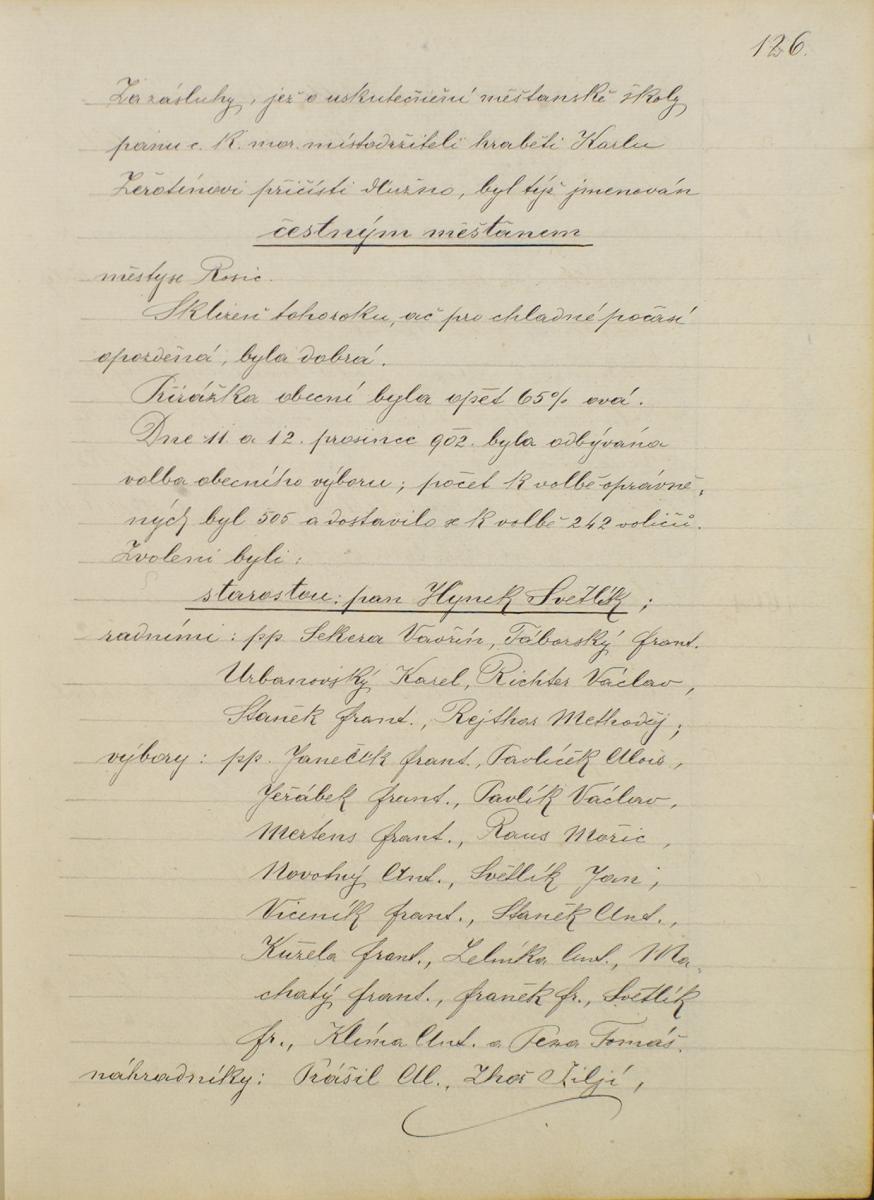 126.
Za zásluhy, jež o uskutečnění měšťanské školy
pánu c. k. mor. místodržiteli hraběti Karlu
Žerotínovi přičísti dlužno, byl týž jmenován
čestným měšťanem
městyse Rosic.
Sklizeň toho roku, ač pro chladné počasí
opozděná, byla dobrá.
Přirážka obecní byla opět 65% ová.
Dne 11 a 12. prosince 902. byla odbývána
volba obecního výboru; počet k volbě oprávně-
ných byl 505 a dostavilo se k volbě 242 voličů.
Zvoleni byli:
starostou: pan Hynek Světlík;
radními: pp Sekera Vavřín, Táborský Frant.
Urbanovský Karel, Richter Václav,
Staněk Frant., Rejthar Methoděj;
výbory: pp. Janeček Frant., Pavlíček Alois,
Jeřábek Frant., Pavlík Václav,
Mertens Frant., Raus Mořic,
Novotný Ant., Světlík Jan,
Viceník Frant., Staněk Ant.,
Kužela Frant., Zelinka Ant., Ma-
chatý Frant., Franěk Fr., Světlík
Fr., Klíma Ant. a Tomáš.
náhradníky: Prášil Al., Jiljí,